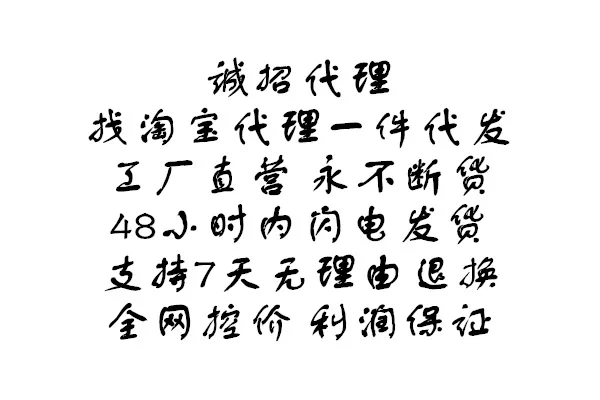 诚招代理
找淘宝代理一件代发
工厂直营 永不断货
48小时内闪电发货
支持7天无理由退换
全网控价 利润保证